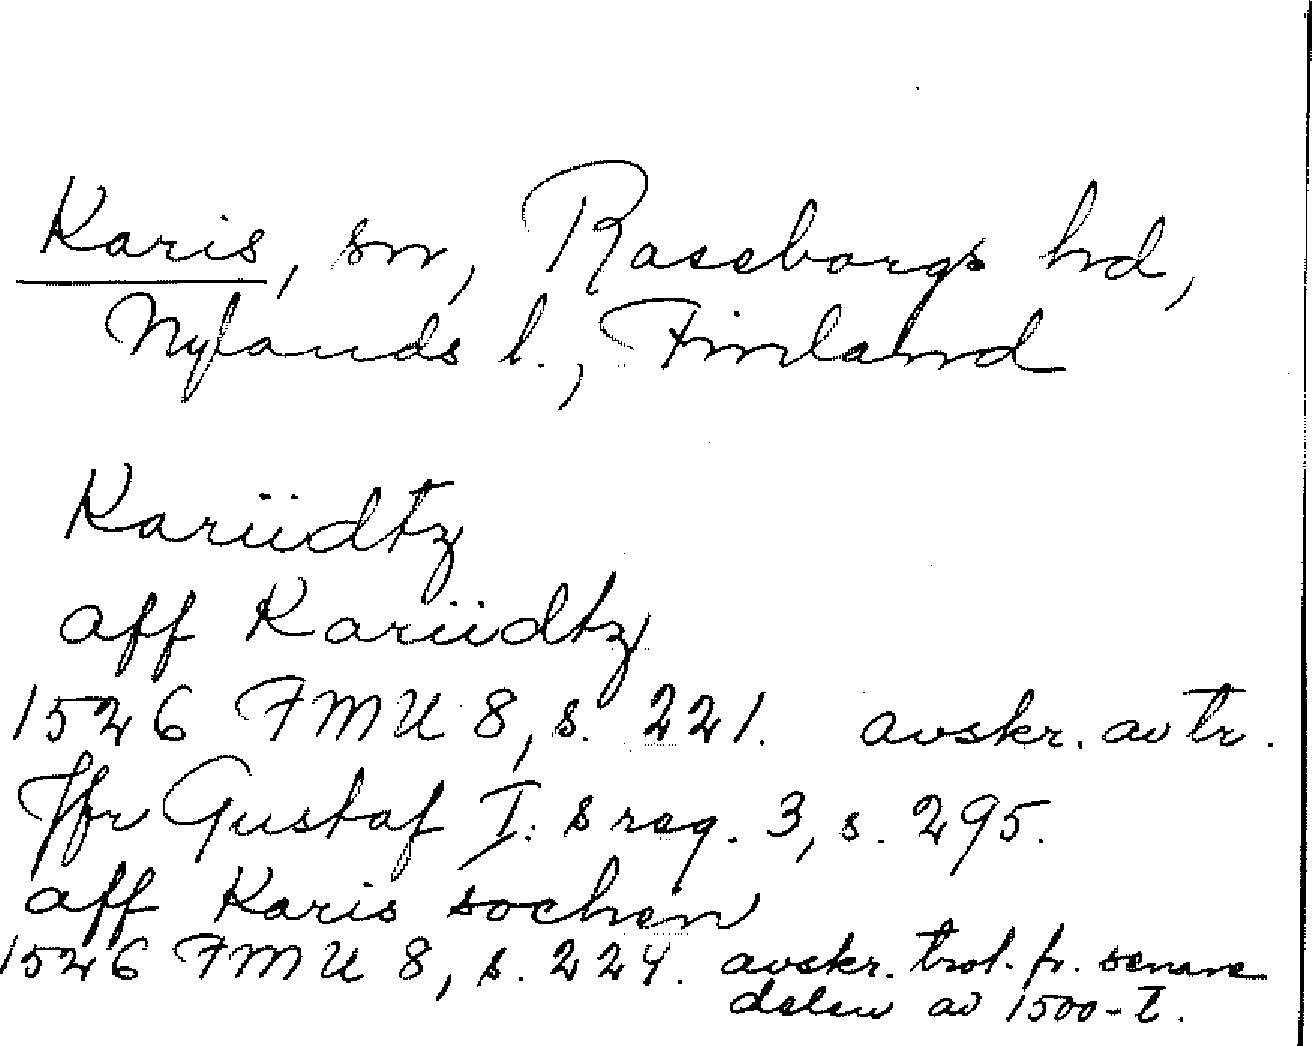 Karis, sn, Raseborgs hd,
Nylands l., Finland
Kariidtz
aff Kariidtz
1526 FMU 8, s. 221. avskr. av tr.
Jfr Gustaf I:s reg. 3, s. 295.
aff Karis sochen
1526 FMU 8, s. 224. avskr. trol. fr. senare
delen av 1500-t.